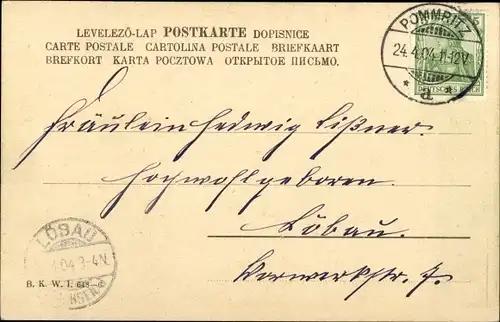 LEVELEZŐ-LAP POSTKARTE DOPISNICE
CARTE POSTALE CARTOLINA POSTALE BRIEFKAART
BREFKORT KARTA POCZTOWA ОТКРЫТОЕ ПИСЬМО.
POMMRITZ
24.4.04.11-12V.
* a *
DEUTSCHES REICH
5
Fräulein Hedwig Lißner.
Hochwohlgeboren.
Löbau.
Vorwerkstr. 7.
LÖBAU
04 3-4N.
B. K. W. I. 648-6